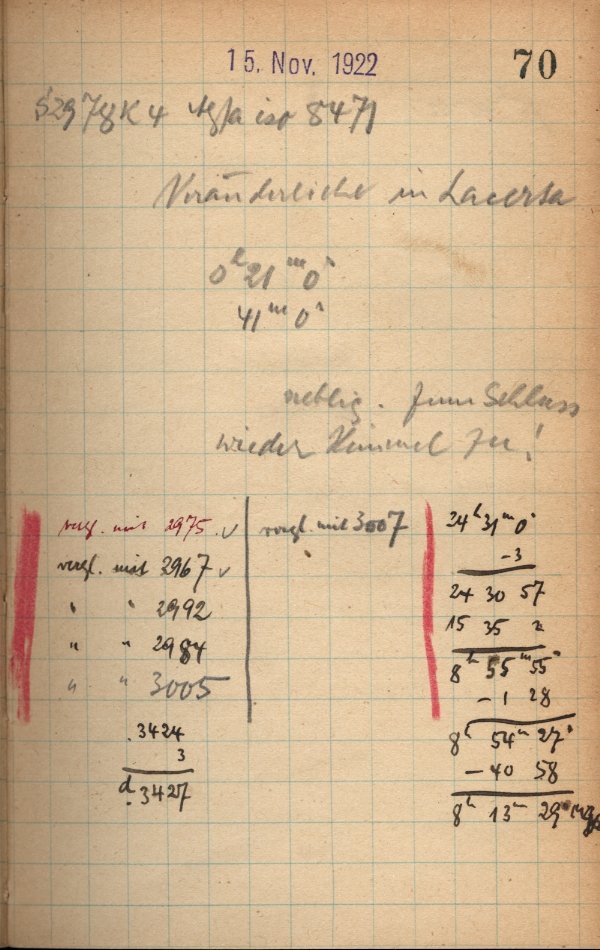 15. Nov. 1922
70
S2978 K4 Agfa iso 8471
Veränderliche in Lacerta
0ʰ 21ᵐ 0ˢ
41ᵐ 0ˢ
neblig. Zum Schluss
wieder Himmel zu!
vergl. mit 2975 ✓
vergl. mit 2967 ✓
" " 2992
" " 2984
" " 3005
.3424
3
d .3427
vergl. mit 3007
24ʰ 31ᵐ 0ˢ
-3
24 30 57
15 35 2
8ʰ 55ᵐ 55ˢ
- 1 28
8ʰ 54ᵐ 27ˢ
- 40 58
8ʰ 13ᵐ 29ˢ